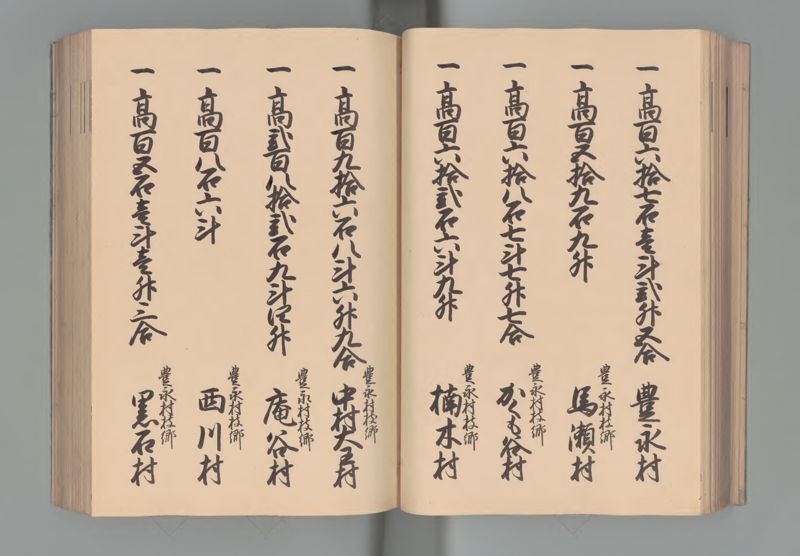 一 高百六拾七石壱斗弐升五合 豊永村
一 高百五拾九石九升 豊永村枝郷 馬瀬村
一 高百六拾八石七斗七升七合 豊永村枝郷 かくも谷村
一 高百六拾弐石六斗九升 豊永村枝郷 楠木村
一 高百九拾六石八斗六升九合 豊永村枝郷 中村大王村
一 高弐百八拾弐石九斗四升 豊永村枝郷 庵谷村
一 高百八石六斗 豊永村枝郷 西川村
一 高百五石壱斗壱升三合 豊永村枝郷 黒石村